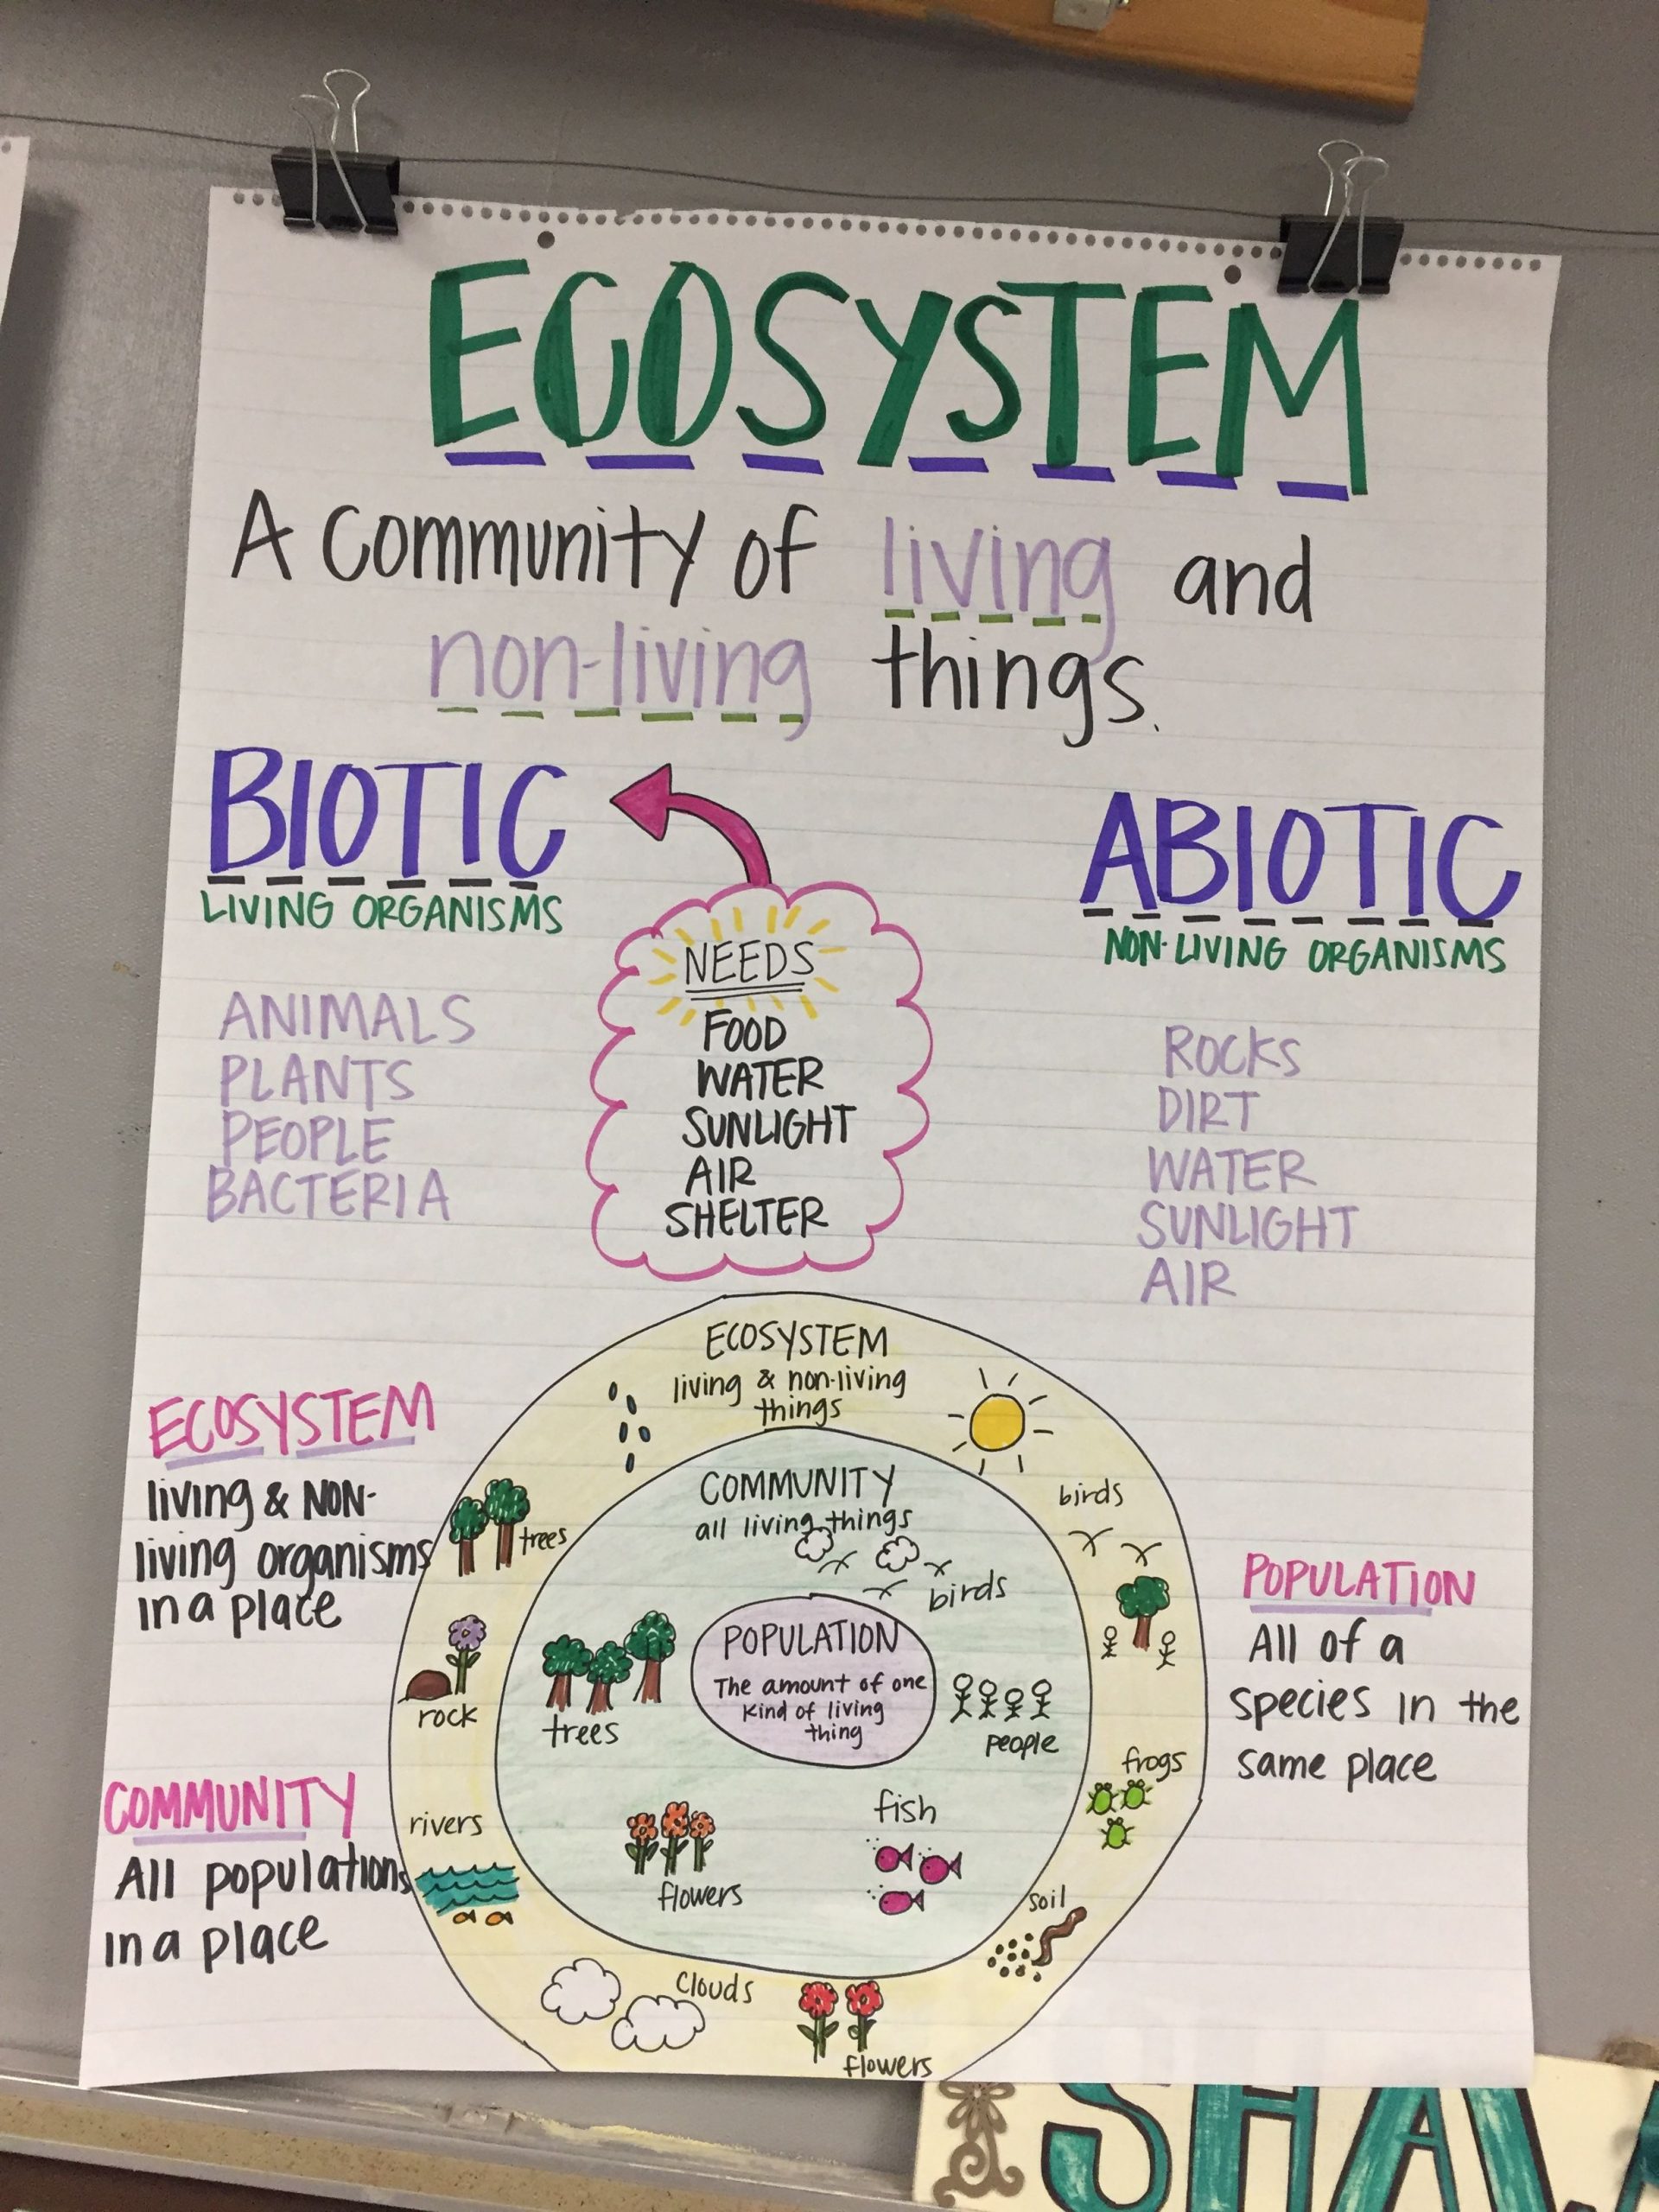 ECOSYSTEM
A community of living and
non-living things.
BIOTIC
LIVING ORGANISMS
ANIMALS
PLANTS
PEOPLE
BACTERIA
NEEDS
FOOD
WATER
SUNLIGHT
AIR
SHELTER
ABIOTIC
NON-LIVING ORGANISMS
ROCKS
DIRT
WATER
SUNLIGHT
AIR
ECOSYSTEM
living & NON-
living organisms
in a place
COMMUNITY
All populations
in a place
ECOSYSTEM
living & non-living
things
trees
birds
rock
frogs
rivers
soil
clouds
flowers
COMMUNITY
all living things
birds
trees
people
fish
flowers
POPULATION
The amount of one
kind of living
thing
POPULATION
All of a
species in the
same place